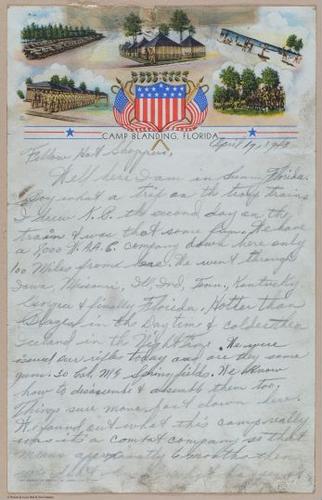 CAMP BLANDING, FLORIDA
April 19, 194
Fellow Hat Shoppers,
Well here I am in sunny Florida.
Boy what a trip on the troop trains
I drew K.P. the second day on the
train & was that some fun. We have
a company down here only
60 Miles from sea. We went through
Iowa, Missouri, Ill, Ind, Tenn, Kentucky
Georgia & finally Florida. Hotter than
in the Daytime & colder than
Iceland in the Nighttime. We were
issued our rifles today and are they some
guns. 30 Cal. M1 Springfields. We know
how to disassemble & assemble them too.
Things sure move fast down here.
We found out what this camp really
was its a combat company so that
means 6 months then